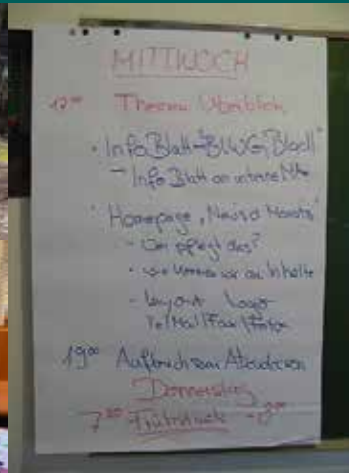 MITTWOCH
Thema Überblick
• InfoBlatt - BLWG "Blattl"
- InfoBlatt an interne MA
• Homepage "News d Monats"
- Wer pflegt das?
- wie kommen wir an Inhalte
- Layout Logo
Tel/Mail/Fax/Fotos
19⁰⁰ Aufbruch zum Abendessen
Donnerstag
Frühstück